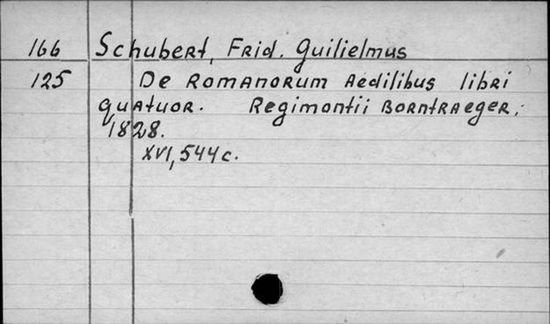 166 Schubert, Frid. Guilielmus
125 De Romanorum Aedilibus libri
quatuor. Regimontii Borntraeger,
1828.
XVI, 544 c.